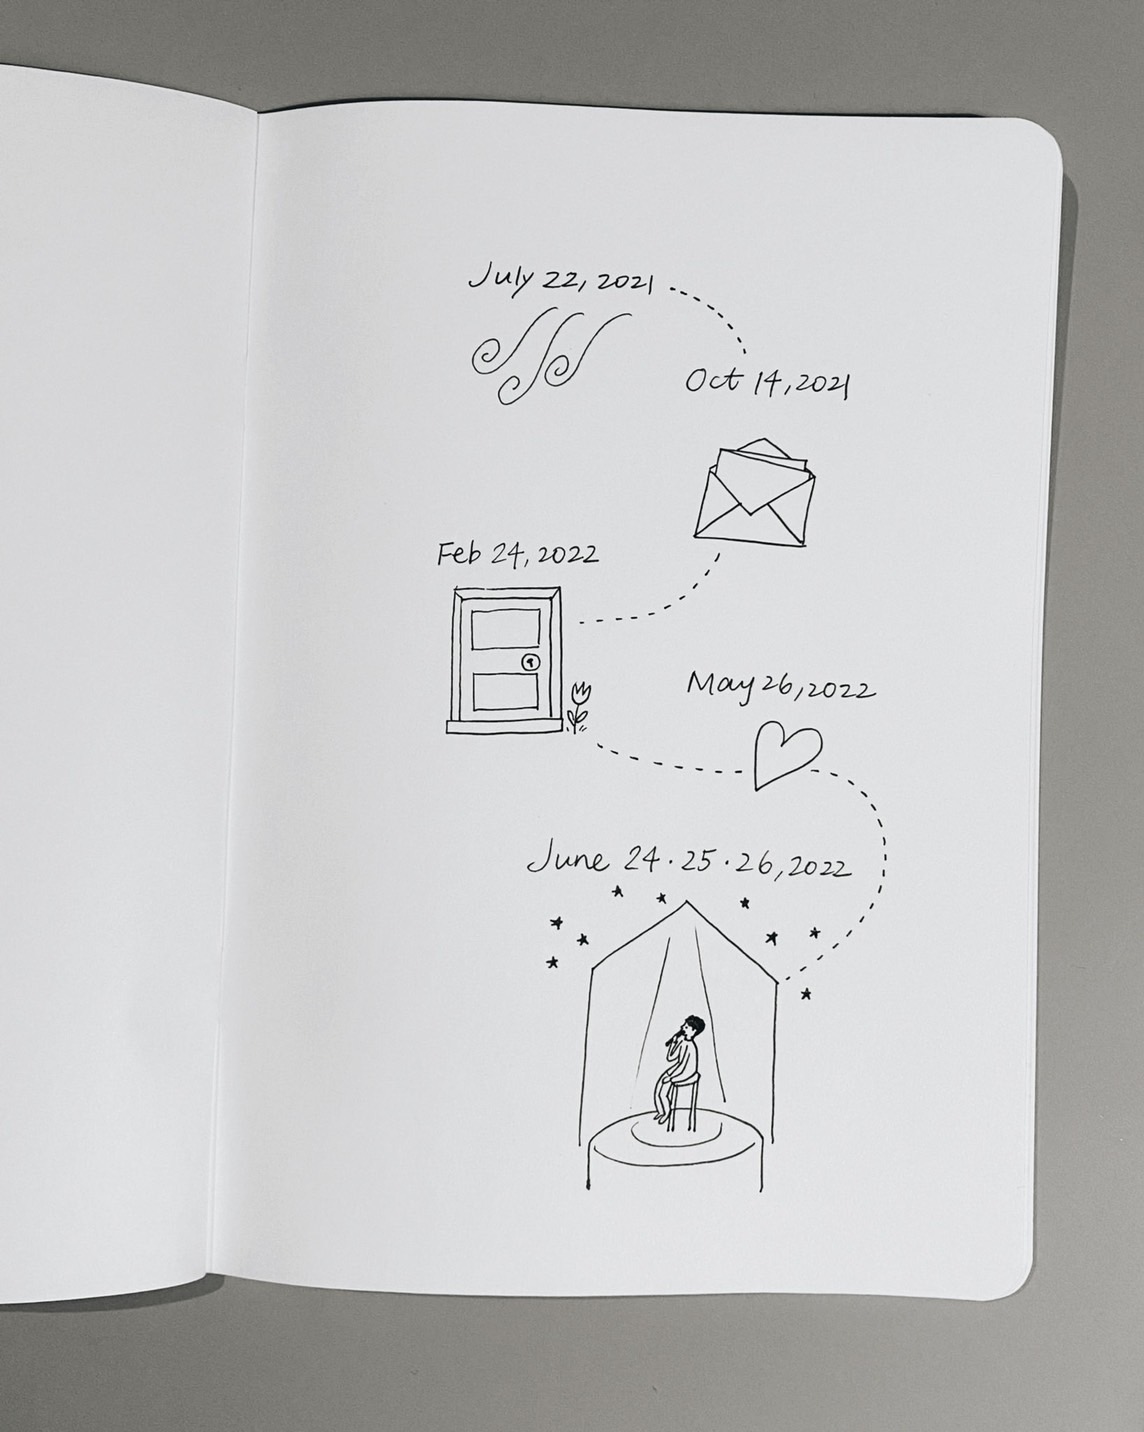 July 22, 2021
Oct 14, 2021
Feb 24, 2022
May 26, 2022
June 24 · 25 · 26, 2022